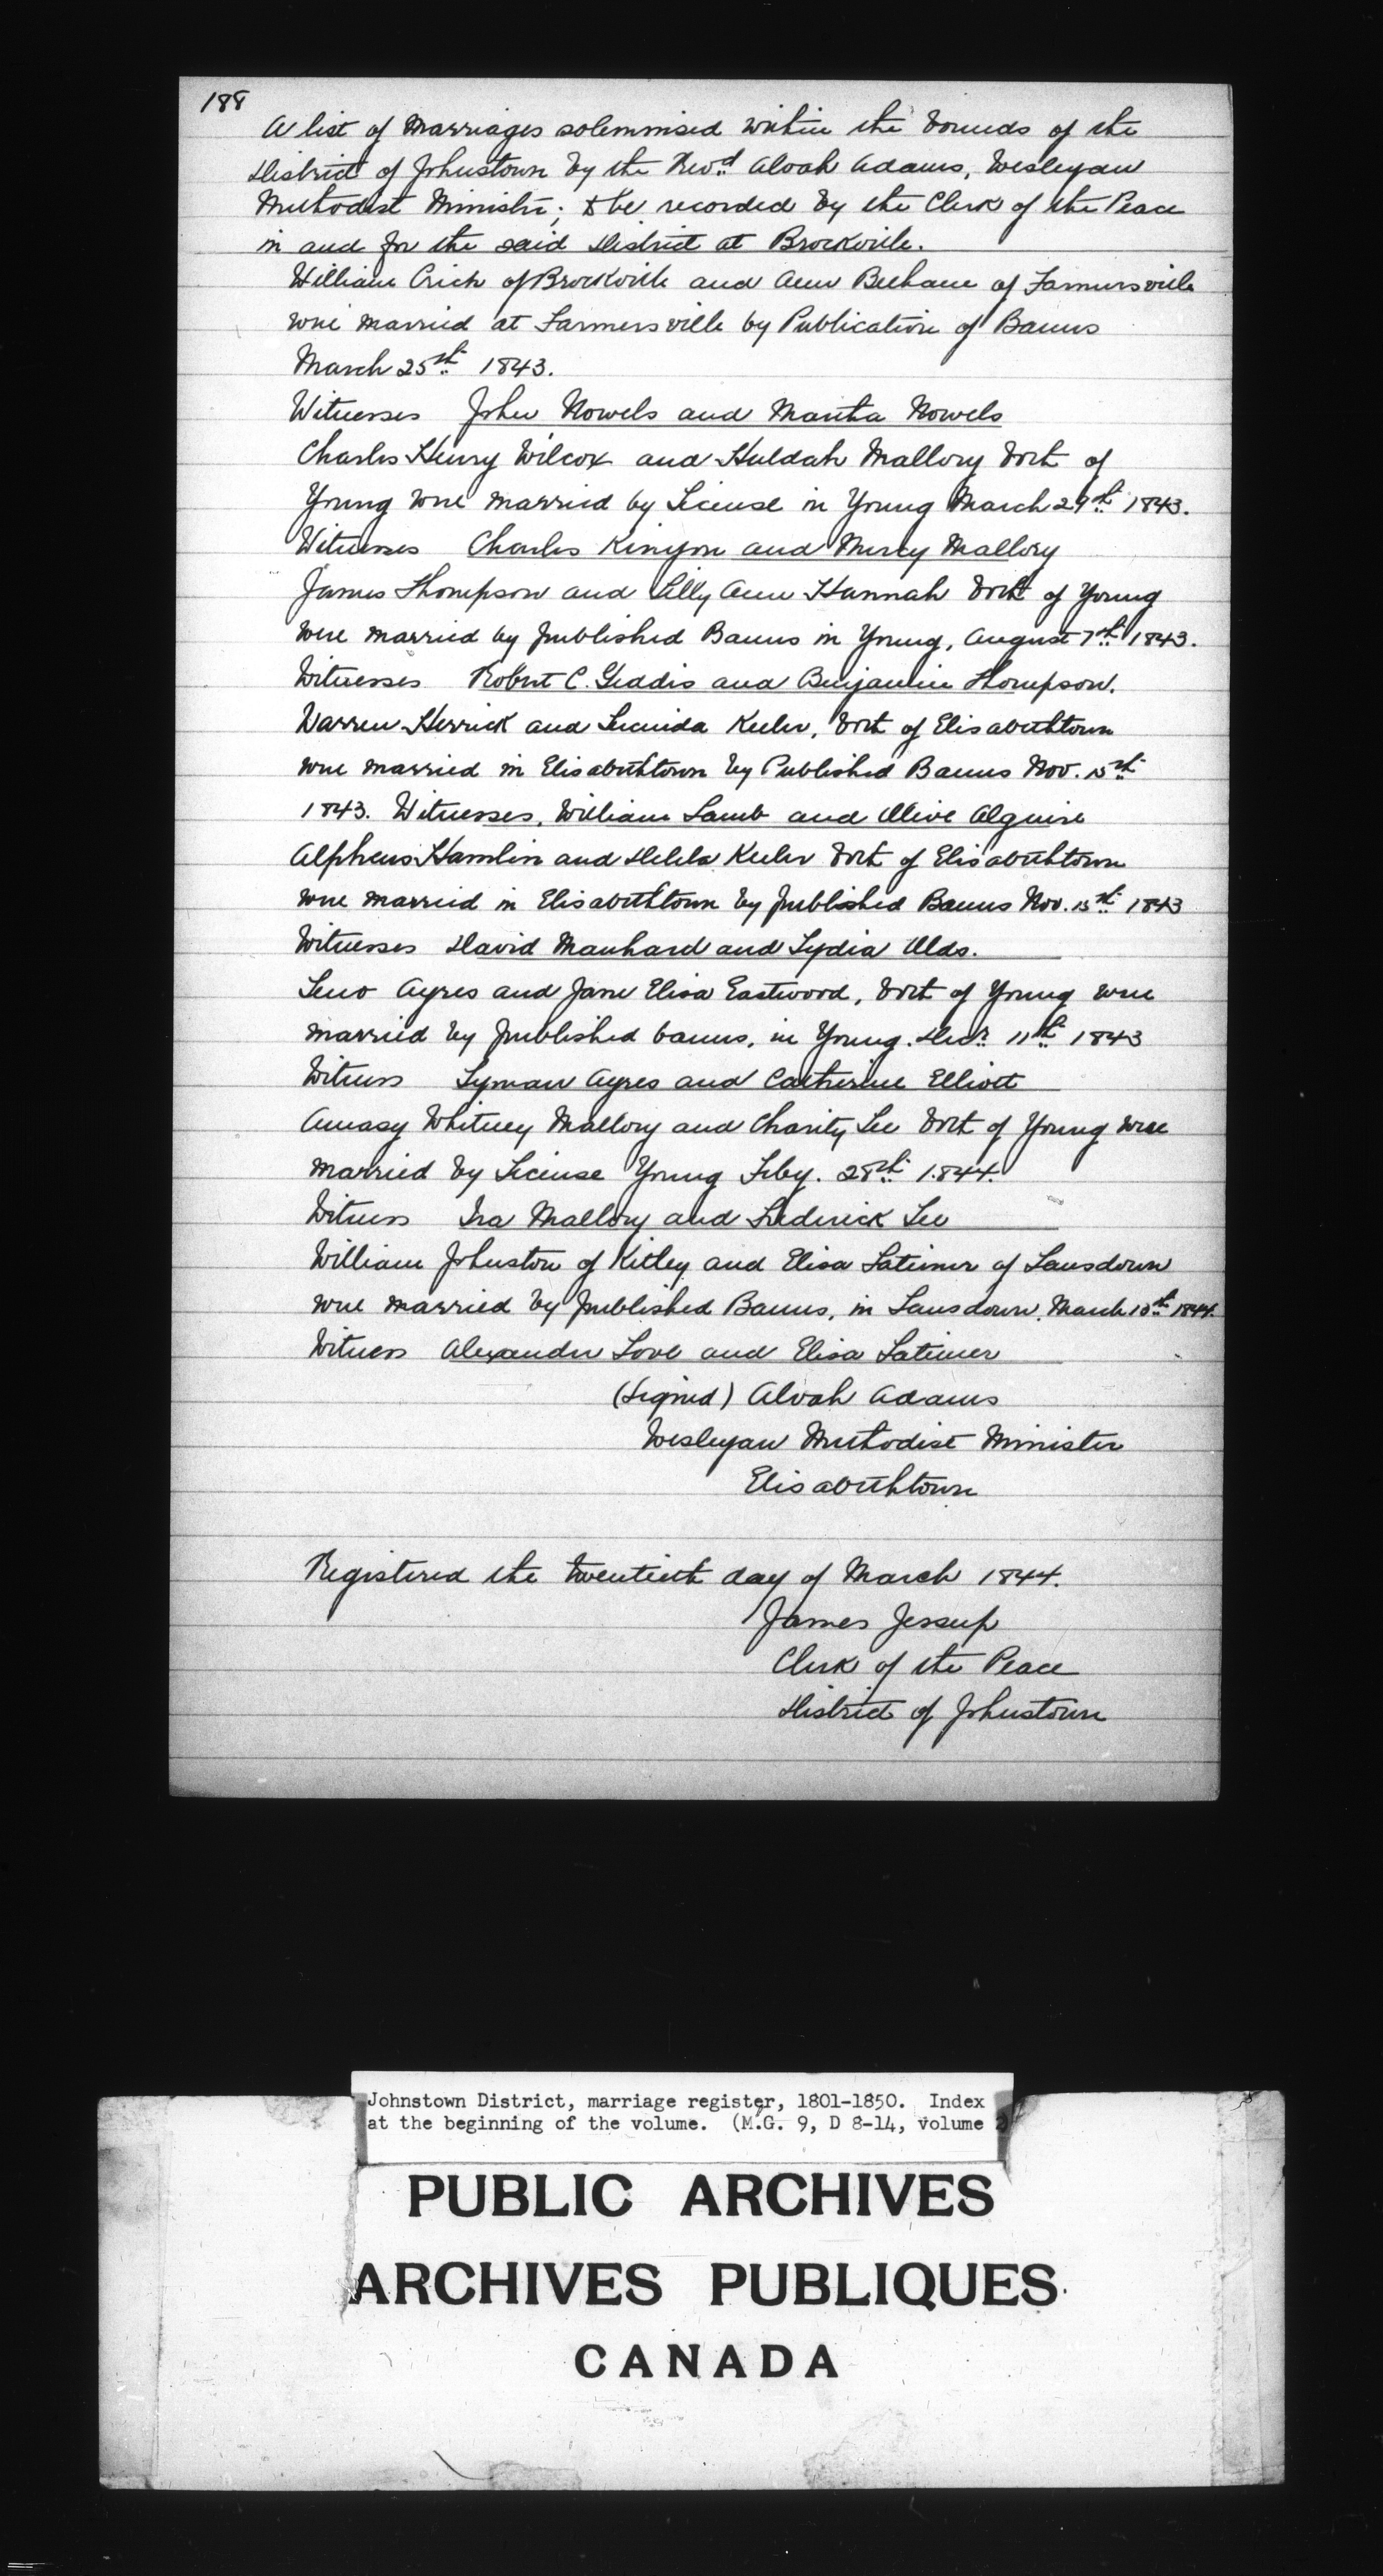 188
A list of Marriages solemnised within the bounds of the
District of Johnstown by the Revd Alvah Adams, Wesleyan
Methodist Minister; to be recorded by the Clerk of the Peace
in and for the said District at Brockville.
William Crich of Brockville and Ann Beehane of Farmersville
were married at Farmersville by Publication of Banns
March 25th 1843.
Witnesses John Nowels and Martha Nowels
Charles Henry Wilcox and Huldah Mallory both of
Young were married by License in Young March 29th 1843.
Witnesses Charles Kinyon and Mercy Mallory
James Thompson and Lilly Ann Hannah both of Young
were married by published Banns in Young, August 7th 1843.
Witnesses Robert C. Geddis and Benjamin Thompson.
Warren Herrick and Lucinda Keeler, both of Elisabethtown
were married in Elisabethtown by Published Banns Nov. 15th
1843. Witnesses, William Lamb and Olive Alguire
Alpheus Hamlin and Delila Keeler both of Elisabethtown
were married in Elisabethtown by published Banns Nov. 15th 1843
Witnesses David Manhard and Lydia Olds.
Leno Ayres and Jane Elisa Eastwood, both of Young were
married by published banns, in Young. Decr 11th 1843
Witness Lyman Ayres and Catherine Elliott
Amasy Whitney Mallory and Charity Lee both of Young were
married by License Young Feby. 28th 1844.
Witness Ira Mallory and Frederick Lee
William Johnston of Kitley and Elisa Latimer of Lansdown
were married by published Banns, in Lansdown, March 15th 1844.
Witness Alexander Love and Elisa Latimer
(Signed) Alvah Adams
Wesleyan Methodist Minister
Elisabethtown
Registered the twentieth day of March 1844.
James Jessup
Clerk of the Peace
District of Johnstown
Johnstown District, marriage register, 1801-1850. Index
at the beginning of the volume. (M.G. 9, D 8-14, volume 2)
PUBLIC ARCHIVES
ARCHIVES PUBLIQUES
CANADA